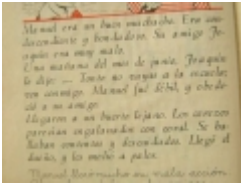 Manuel era un buen muchacho. Era con-
descendiente y bondadoso. Su amigo Jo-
aquín era muy malo.
Una mañana del mes de junio, Joaquín
le dijo: — Tonto no vayas a la escuela;
ven conmigo. Manuel fué débil, y obede-
ció a su amigo.
Llegaron a un huerto lejano. Los cerezos
parecían engalanados con coral. Se ha-
llaban contentos y descuidados. Llegó el
dueño, y los molió a palos.
Manuel muy mala acción